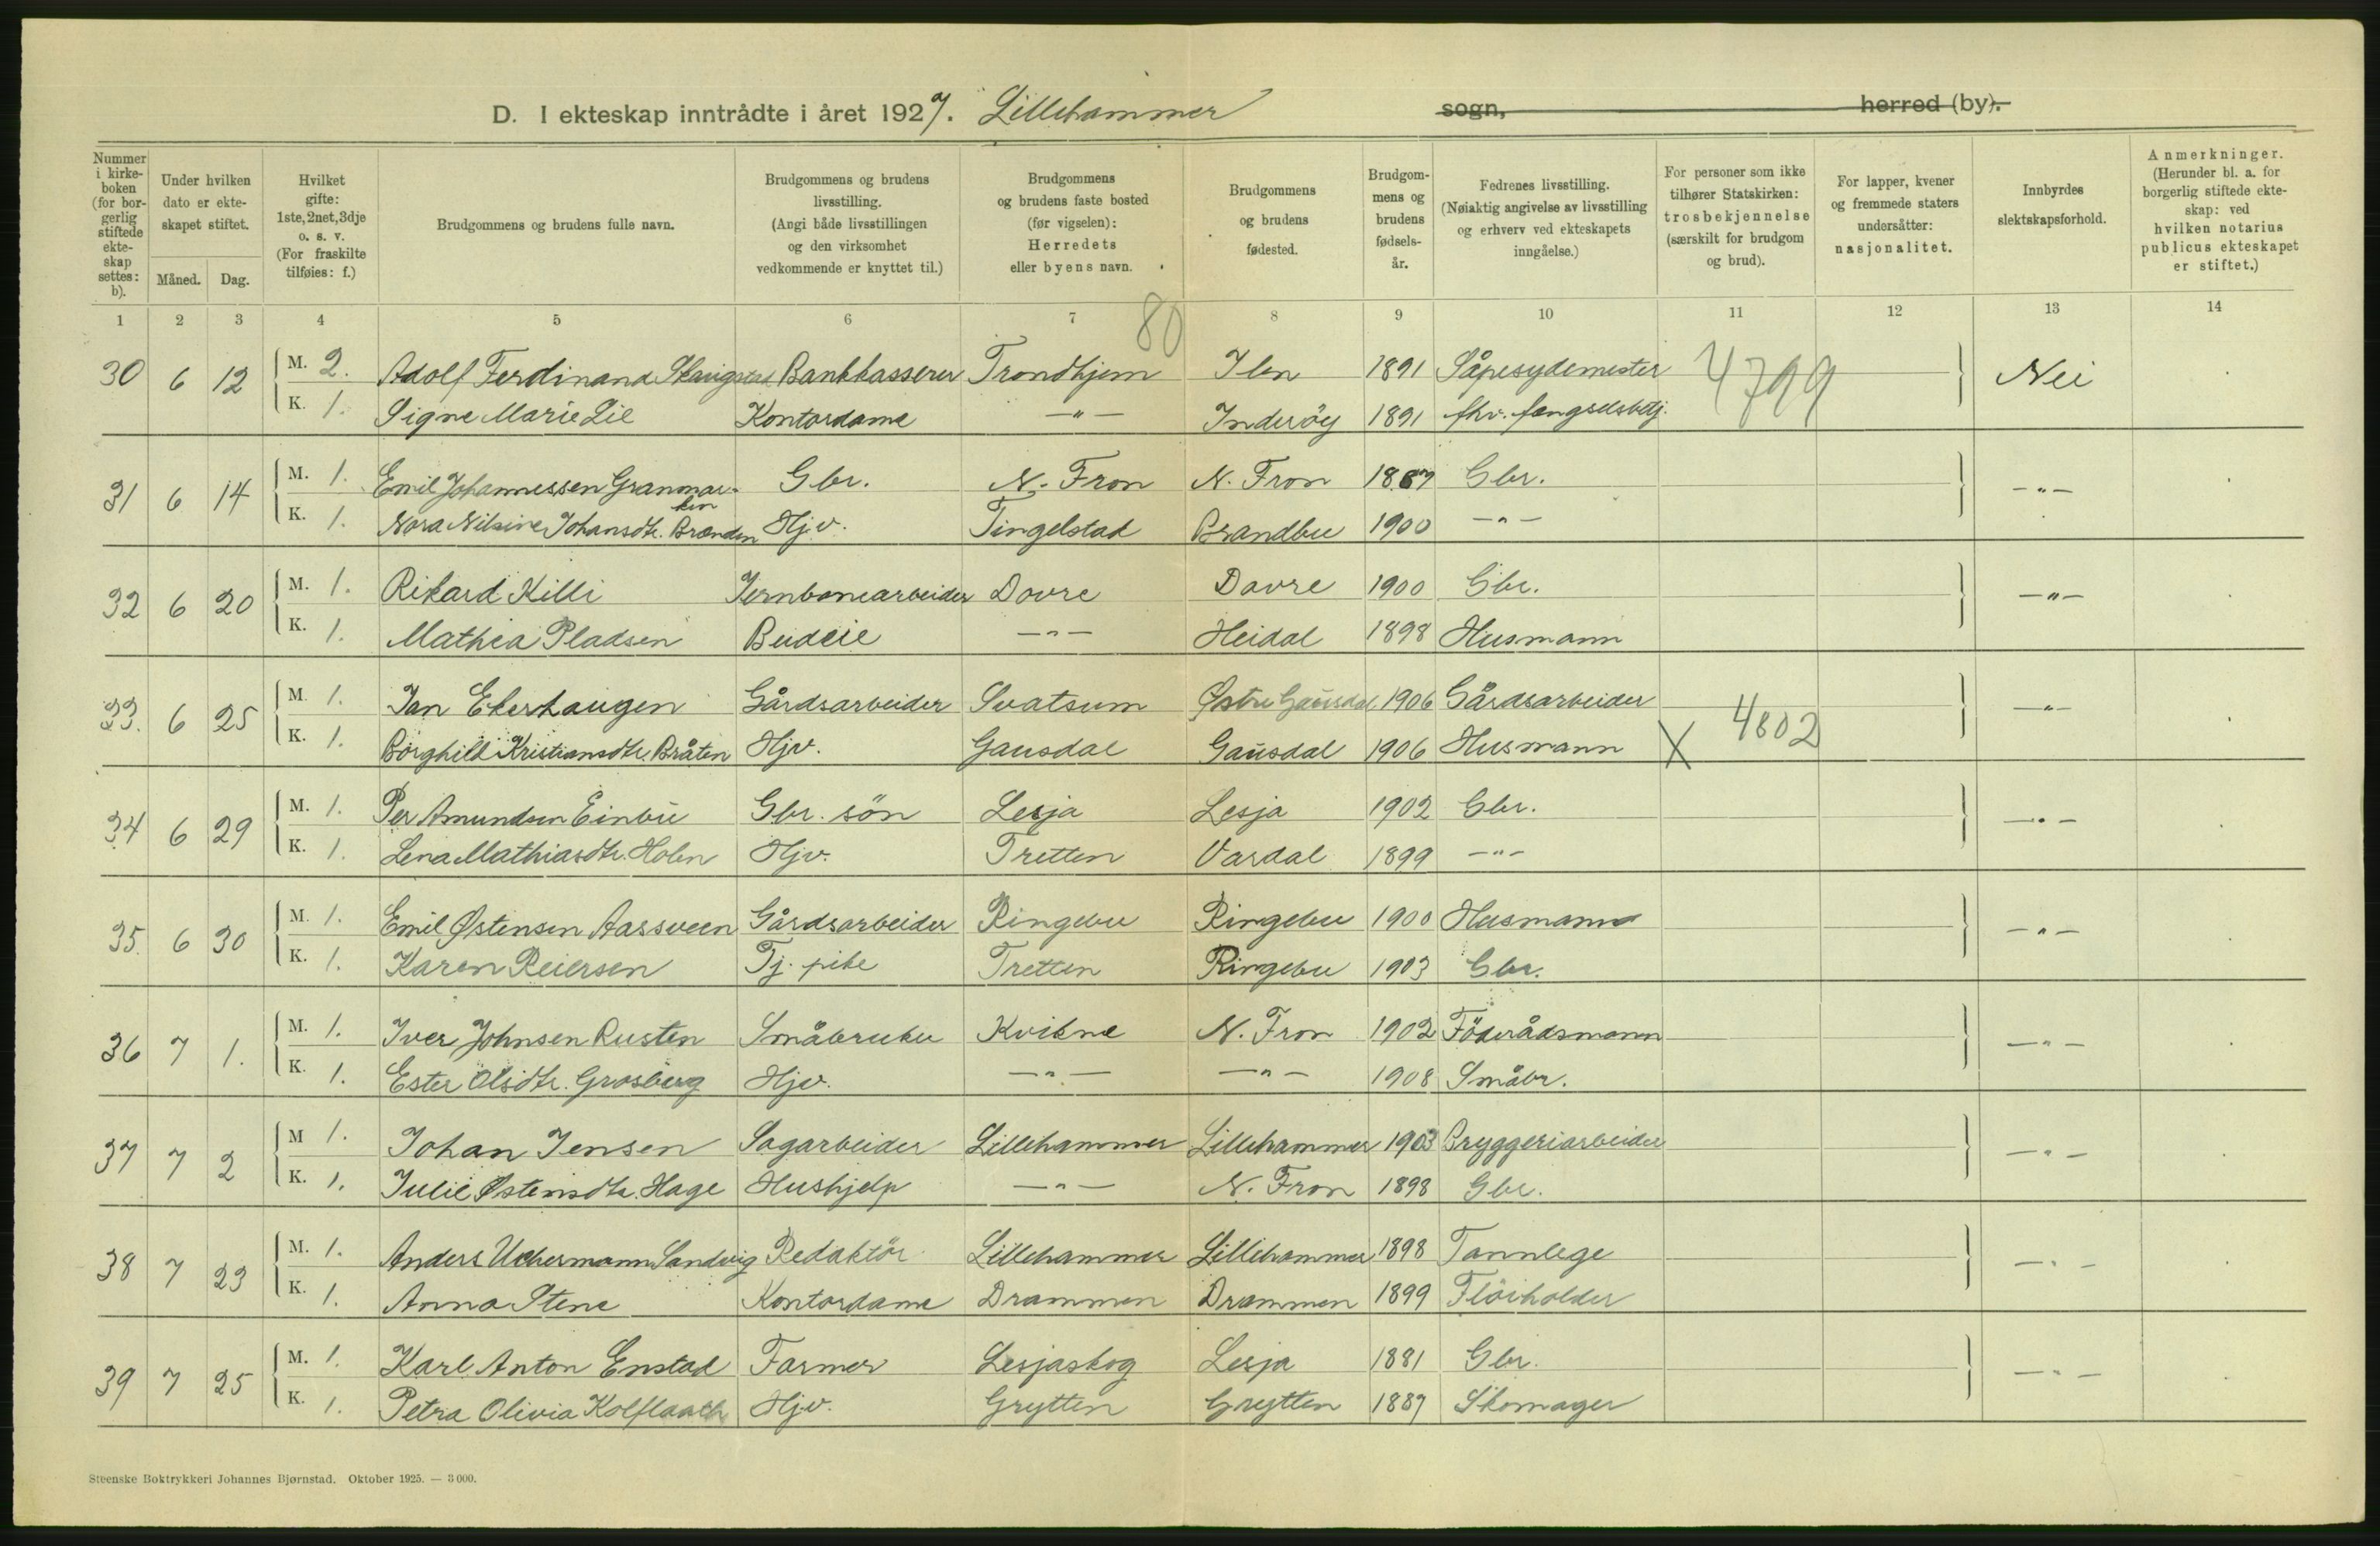 D. I ekteskap inntrådte i året 1927. Lillehammer sogn, herred (by).
Nummer i kirkeboken (for borgerlig stiftede ekteskap settes: b).
Under hvilken dato er ekteskapet stiftet.
Måned. Dag.
Hvilket gifte: 1ste, 2net, 3dje o. s. v. (For fraskilte tilføies: f.)
Brudgommens og brudens fulle navn.
Brudgommens og brudens livsstilling. (Angi både livsstillingen og den virksomhet vedkommende er knyttet til.)
Brudgommens og brudens faste bosted (før vigselen): Herredets eller byens navn.
Brudgommens og brudens fødested.
Brudgommens og brudens fødselsår.
Fedrenes livsstilling. (Nøiaktig angivelse av livsstilling og erhverv ved ekteskapets inngåelse.)
For personer som ikke tilhører Statskirken: trosbekjennelse (særskilt for brudgom og brud).
For lapper, kvener og fremmede staters undersåtter: nasjonalitet.
Innbyrdes slektskapsforhold.
Anmerkninger. (Herunder bl. a. for borgerlig stiftede ekteskap: ved hvilken notarius publicus ekteskapet er stiftet.)
1 2 3 4 5 6 7 8 9 10 11 12 13 14
80
30 6 12 M. 2. Adolf Ferdinand Skaugstad Bankkasserer Trondhjem Ilen 1891 Såpesydemester 4799 Nei
K. 1. Signe Marie Lie Kontordame —"— Inderöy 1891 fhv. fængselsbetj.
31 6 14 M. 1. Emil Johannessen Granmarken Gbr. N. Fron N. Fron 1887 Gbr. —"—
K. 1. Nora Nilsine Johansdtr. Brænden Hjv. Tingelstad Brandbu 1900 —"—
32 6 20 M. 1. Rikard Killi Jernbanearbeider Dovre Dovre 1900 Gbr. —"—
K. 1. Mathea Pladsen Budeie —"— Heidal 1898 Husmann
33. 6 25 M. 1. Jan Ekerhaugen Gårdsarbeider Svatsum Østre Gausdal 1906 Gårdsarbeider —"—
K. 1. Borghild Kristiansdtr. Bråten Hjv. Gausdal Gausdal 1906 Husmann X 4802
34 6 29 M. 1. Per Amundsen Einbu Gbr. sön Lesja Lesja 1902 Gbr. —"—
K. 1. Lena Mathiasdtr. Holen Hjv. Tretten Vardal 1899 —"—
35. 6 30 M. 1. Emil Østensen Aasveen Gårdsarbeider Ringebu Ringebu 1900 Husmann —"—
K. 1. Karen Reiersen Tj. pike Tretten Ringebu 1903 Gbr.
36 7 1. M. 1. Iver Johnsen Rusten Småbruker Kvikne N. Fron 1902 Föderådsmann —"—
K. 1. Ester Olsdtr. Grosberg Hjv. —"— —"— 1908 Småbr.
37 7 2 M 1. Johan Jensen Sagarbeider Lillehammer Lillehammer 1903 Bryggeriarbeider —"—
K. 1. Julie Østensdtr. Hage Hushjelp —"— N. Fron 1898 Gbr.
38 7 23 M. 1. Anders Uchermann Sandvig Redaktör Lillehammer Lillehammer 1898 Tannlege —"—
K. 1. Anna Stene Kontordame Drammen Drammen 1899 Flöiholder
39 7 25 M. 1. Karl Anton Enstad Farmer Lesjaskog Lesja 1881 Gbr. —"—
K. 1. Petra Olivia Kolflaath Hjv. Grytten Grytten 1887 Skomager
Steenske Boktrykkeri Johannes Bjørnstad. Oktober 1925. — 3000.